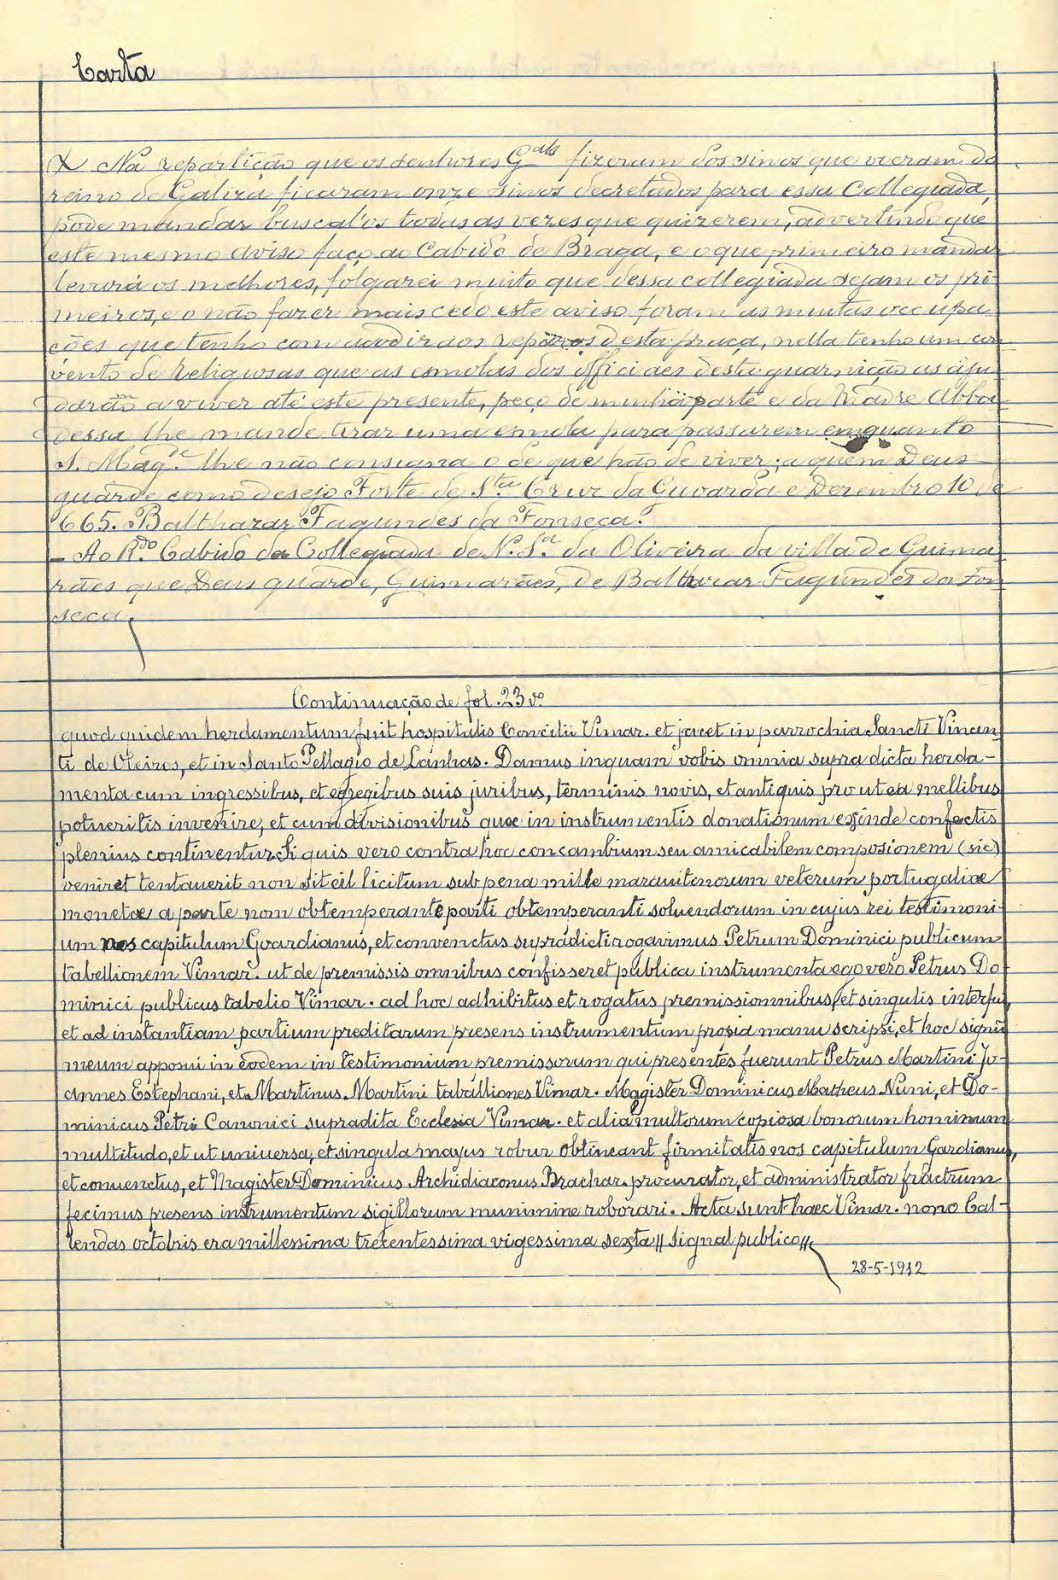 Carta
X Na repartição que os senhores G.aes fizeram dos sinos que vieram do
reino de Galiza ficaram onze sinos decretados para essa Collegiada,
pode mandar buscal'os todas as vezes que quizerem, advertindo que
este mesmo aviso faço ao Cabido de Braga, e o que primeiro mandar
levará os melhores, folgarei muito que dessa collegiada sejam os pri-
meiros, e o não fazer mais cedo este aviso foram as muitas occupa-
ções que tenho com acodir aos reparos d'esta praça, nella tenho um con
vento de Religiosas que as esmolas dos officiaes deste guarnição as aju
darão a viver até este presente, peço de minha parte e da Madre Abba
dessa lhe mande tirar uma esmola para passarem emquanto
S. Mag.de lhe não consigna o de que hão de viver; a quem Deus
guarde como desejo Forte de S.ta Cruz da Guoarda e Dezembro 10 de
665. Balthazar Fagundes da Fonseca.
- Ao R.do Cabido da Collegiada de N. S.ra da Oliveira da villa de Guima
rães que Deus guarde, Guimarães, de Balthazar Fagundes da Fon
seca.
Continuação de fol. 23 vº
quod quidem herdamentum fuit hospitalis Concilii Vimar. et jacet in parrochia Sancti Vincen
ti de Oleiros, et in Santo Pellagio de Lanhas. Damus inquam vobis omnia supradicta herda-
menta cum ingressibus, et egregibus suis juribus, terminis novis, et antiquis pro ut ea mellibus
potueritis invenire, et cum divisionibus quae in instrumentis donationum exinde confectis
plenius continentur. Si quis vero contra hoc concambium seu amicabilem composionem (sic)
veniret tentauerit non sit eil licitum sub pena mille marauitenorum veterum portugaliae
monetae a parte nom obtemperante parti obtemperanti soluendorum in cujus rei testimoni-
um nos capitulum Guardianus, et convenctus supradicti rogavimus Petrum Dominici publicum
tabellionem Vimar. ut de premissis omnibus confisseret publica instrumenta ego vero Petrus Do
minici publicus tabelio Vimar. ad hoc adhibitus et rogatus premissi omnibus, et singulis interfui,
et ad instantiam partium preditarum presens instrumentum propia manu scripsi, et hoc signũ
meum apposui in eodem in testimonium premissorum qui presentes fuerunt Petrus Martini Jo-
annes Estephani, et Martinus Martini taballiones Vimar. Magister Dominicus Matheus Nuni, et Do-
minicus Petri Canonici supradita Ecclesia Vimar. et alia multorum copiosa bonorum hominum
multitudo, et ut universa, et singula mayus robur obtineant firmitatis nos capitulum Gardianus,
et conuenctus, et Magister Dominicus Archidiaconus Brachar. procurator, et administrator fractrum
fecimus presens instrumentum sigillorum munimine roborari. Acta sunt haec Vimar. nono Cal-
lendas octobris era millessima trecentessima vigessima sexta // Signal publico //
28-5-1912